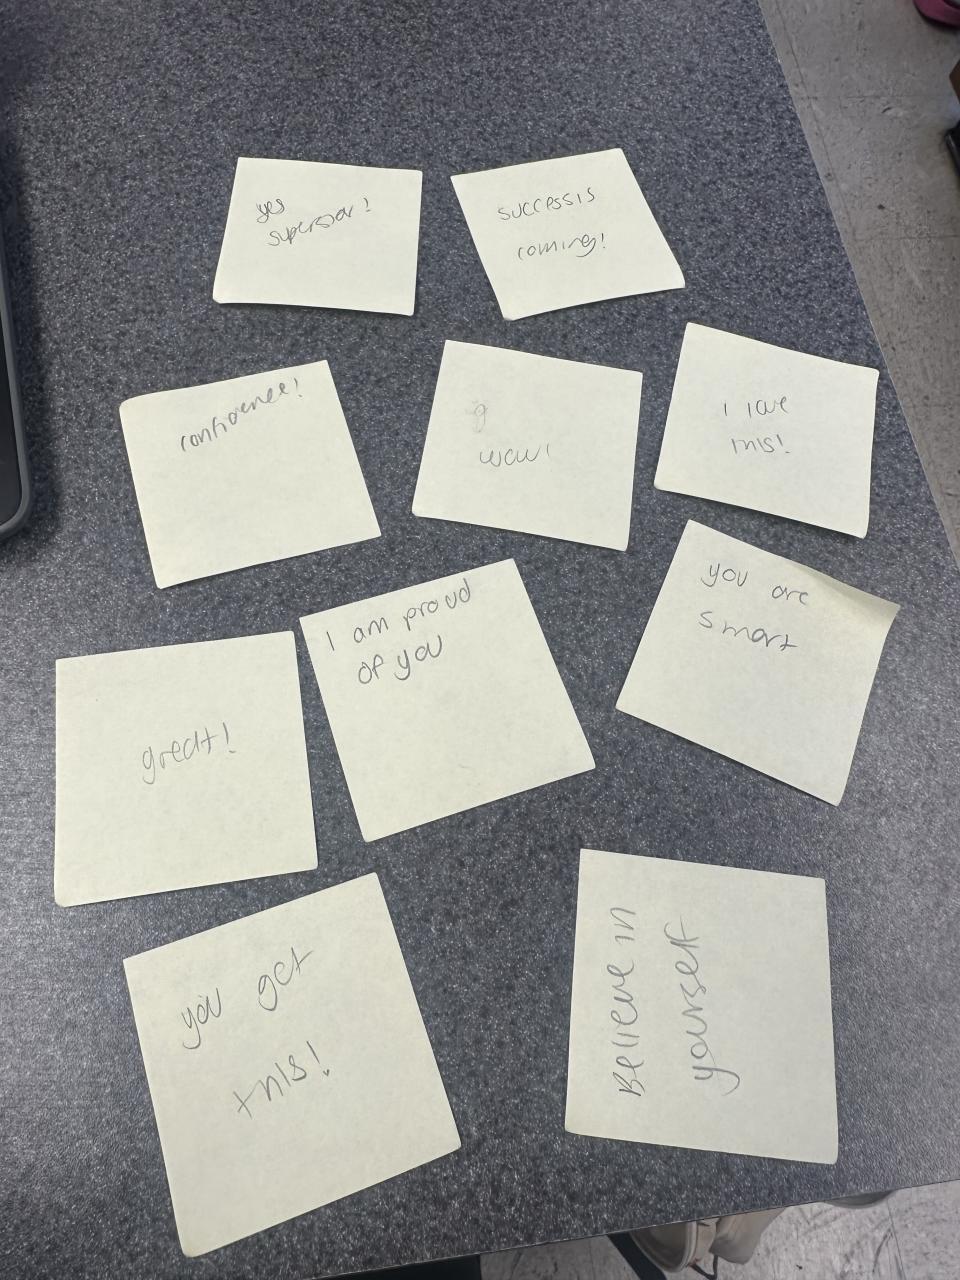 yes
superstar!
success is
coming!
confidence!
wow!
I love
this!
I am proud
of you
you are
smart
great!
you got
this!
Believe in
yourself